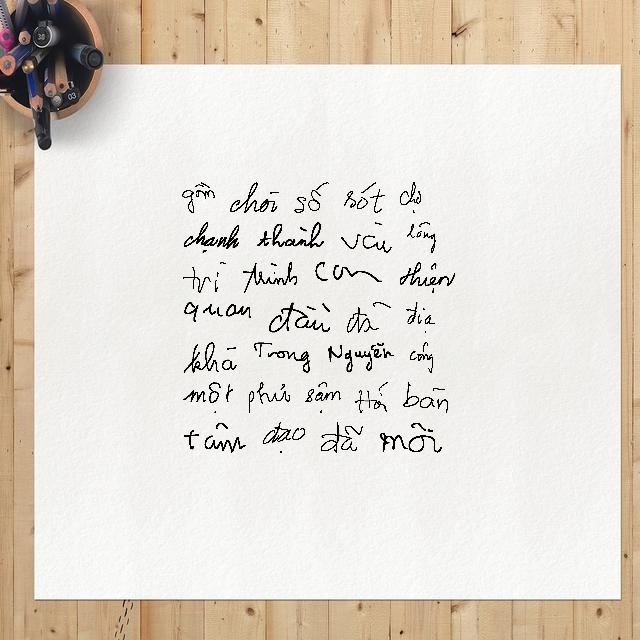 gồm chơi số sót chợ
chạnh thành vàu lông
trị trình con thiện
quan đàu đã địa
khá Trong Nguyễn công
một phủ sậm Hố bãn
tâm đạo đã môi